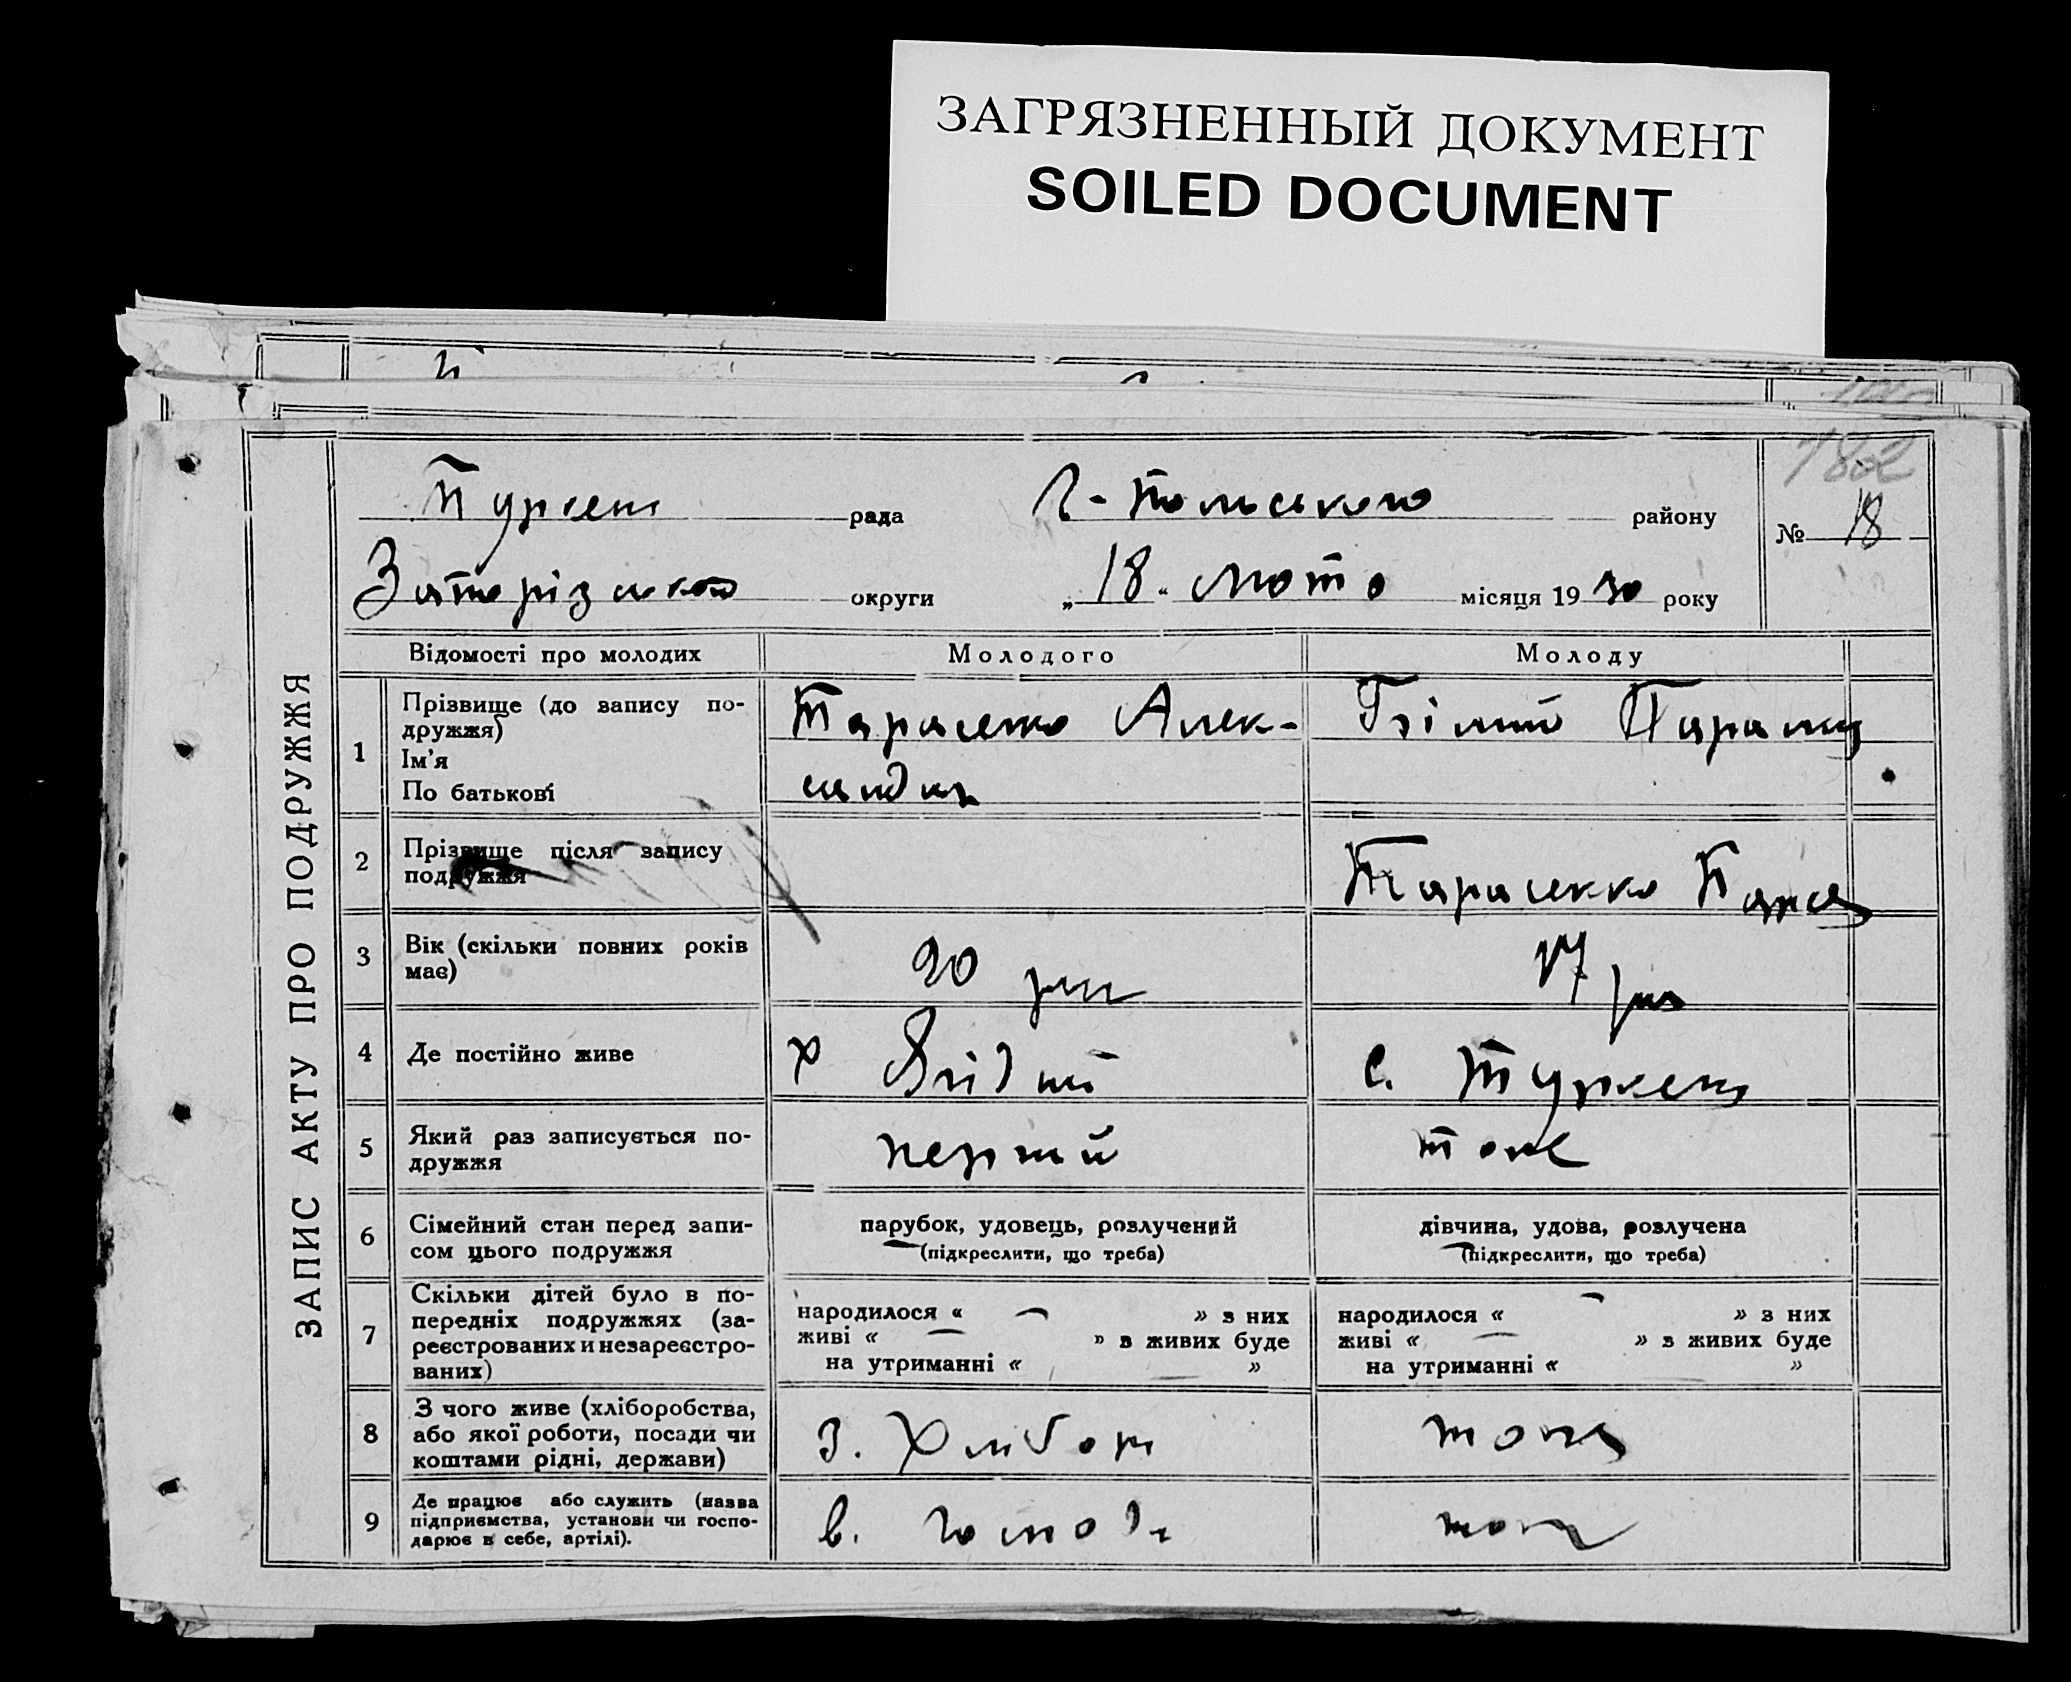 ЗАГРЯЗНЕННЫЙ ДОКУМЕНТ
SOILED DOCUMENT
182
ЗАПИС АКТУ ПРО ПОДРУЖЖЯ
Туркен рада Г-Польського району
№ 18
округи „18“ лютого місяця 1930 року
Відомості про молодих Молодого Молоду
1 Прізвище (до запису по-
дружжя)
Ім'я
По батькові
Тарасенко Алек-
Параски
2 Прізвище після запису
подружжя
Тарасенко
3 Вік (скільки повних років
має)
20 рік
17 рік
4 Де постійно живе
х
с. Туркен
5 Який раз записується по-
дружжя
перший
тоже
6 Сімейний стан перед запи-
сом цього подружжя
парубок, удовець, розлучений
(підкреслити, що треба)
дівчина, удова, розлучена
(підкреслити, що треба)
7 Скільки дітей було в по-
передніх подружжях (за-
реєстрованих и незареєстро-
ваних)
народилося « » з них
живі « » з живих буде
на утриманні « »
народилося « » з них
живі « » з живих буде
на утриманні « »
8 З чого живе (хліборобства,
або якої роботи, посади чи
коштами рідні, держави)
з. Хлибор
тоже
9 Де працює або служить (назва
підприємства, установи чи госпо-
дарює в себе, артілі).
в.
тоже